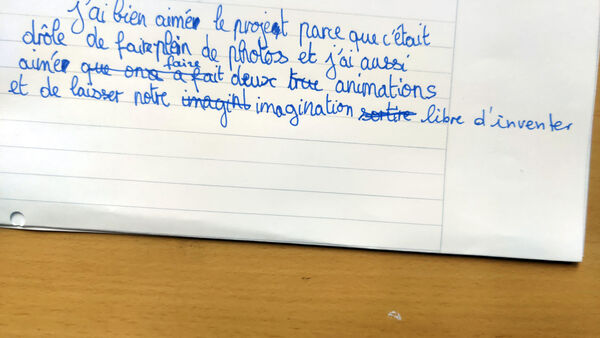 j'ai bien aimér le projet parce que c'était
drôle de faire plein de photos et j'ai aussi
aimér que on a faire a fait deux true animations
et de laisser notre imagint imagination sortire libre d'inventer